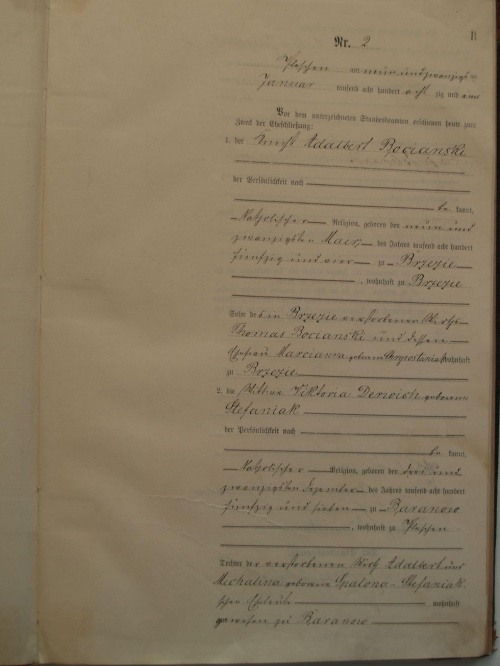 B
Nr. 2
Pleschen am neun und zwanzigsten
Januar tausend acht hundert acht zig und
Vor dem unterzeichneten Standesbeamten erschienen heute zum
Zweck der Eheschließung:
1. der Knecht Adalbert Bocianski
der Persönlichkeit nach
be kannt,
Katholischer Religion, geboren den neun und
zwanzigsten Maerz des Jahres tausend acht hundert
fünfzig und vier zu Brzezie
, wohnhaft zu Brzezie
Sohn des in Brzezie verstorbenen
Thomas Bocianski und dessen
Ehefrau Marcianna geborene wohnhaft
zu Brzezie
2. die Wittwe Viktoria Derwich geborene
Stefaniak
der Persönlichkeit nach
be kannt,
Katholischer Religion, geboren den drei und
zwanzigsten Dezember des Jahres tausend acht hundert
fünfzig und sieben zu Baranow
, wohnhaft zu Pleschen
Tochter der verstorbenen Wirth Adalbert und
Michalina geborene Spalona - Stefaniak
schen Eheleute wohnhaft
gewesen zu Baranow